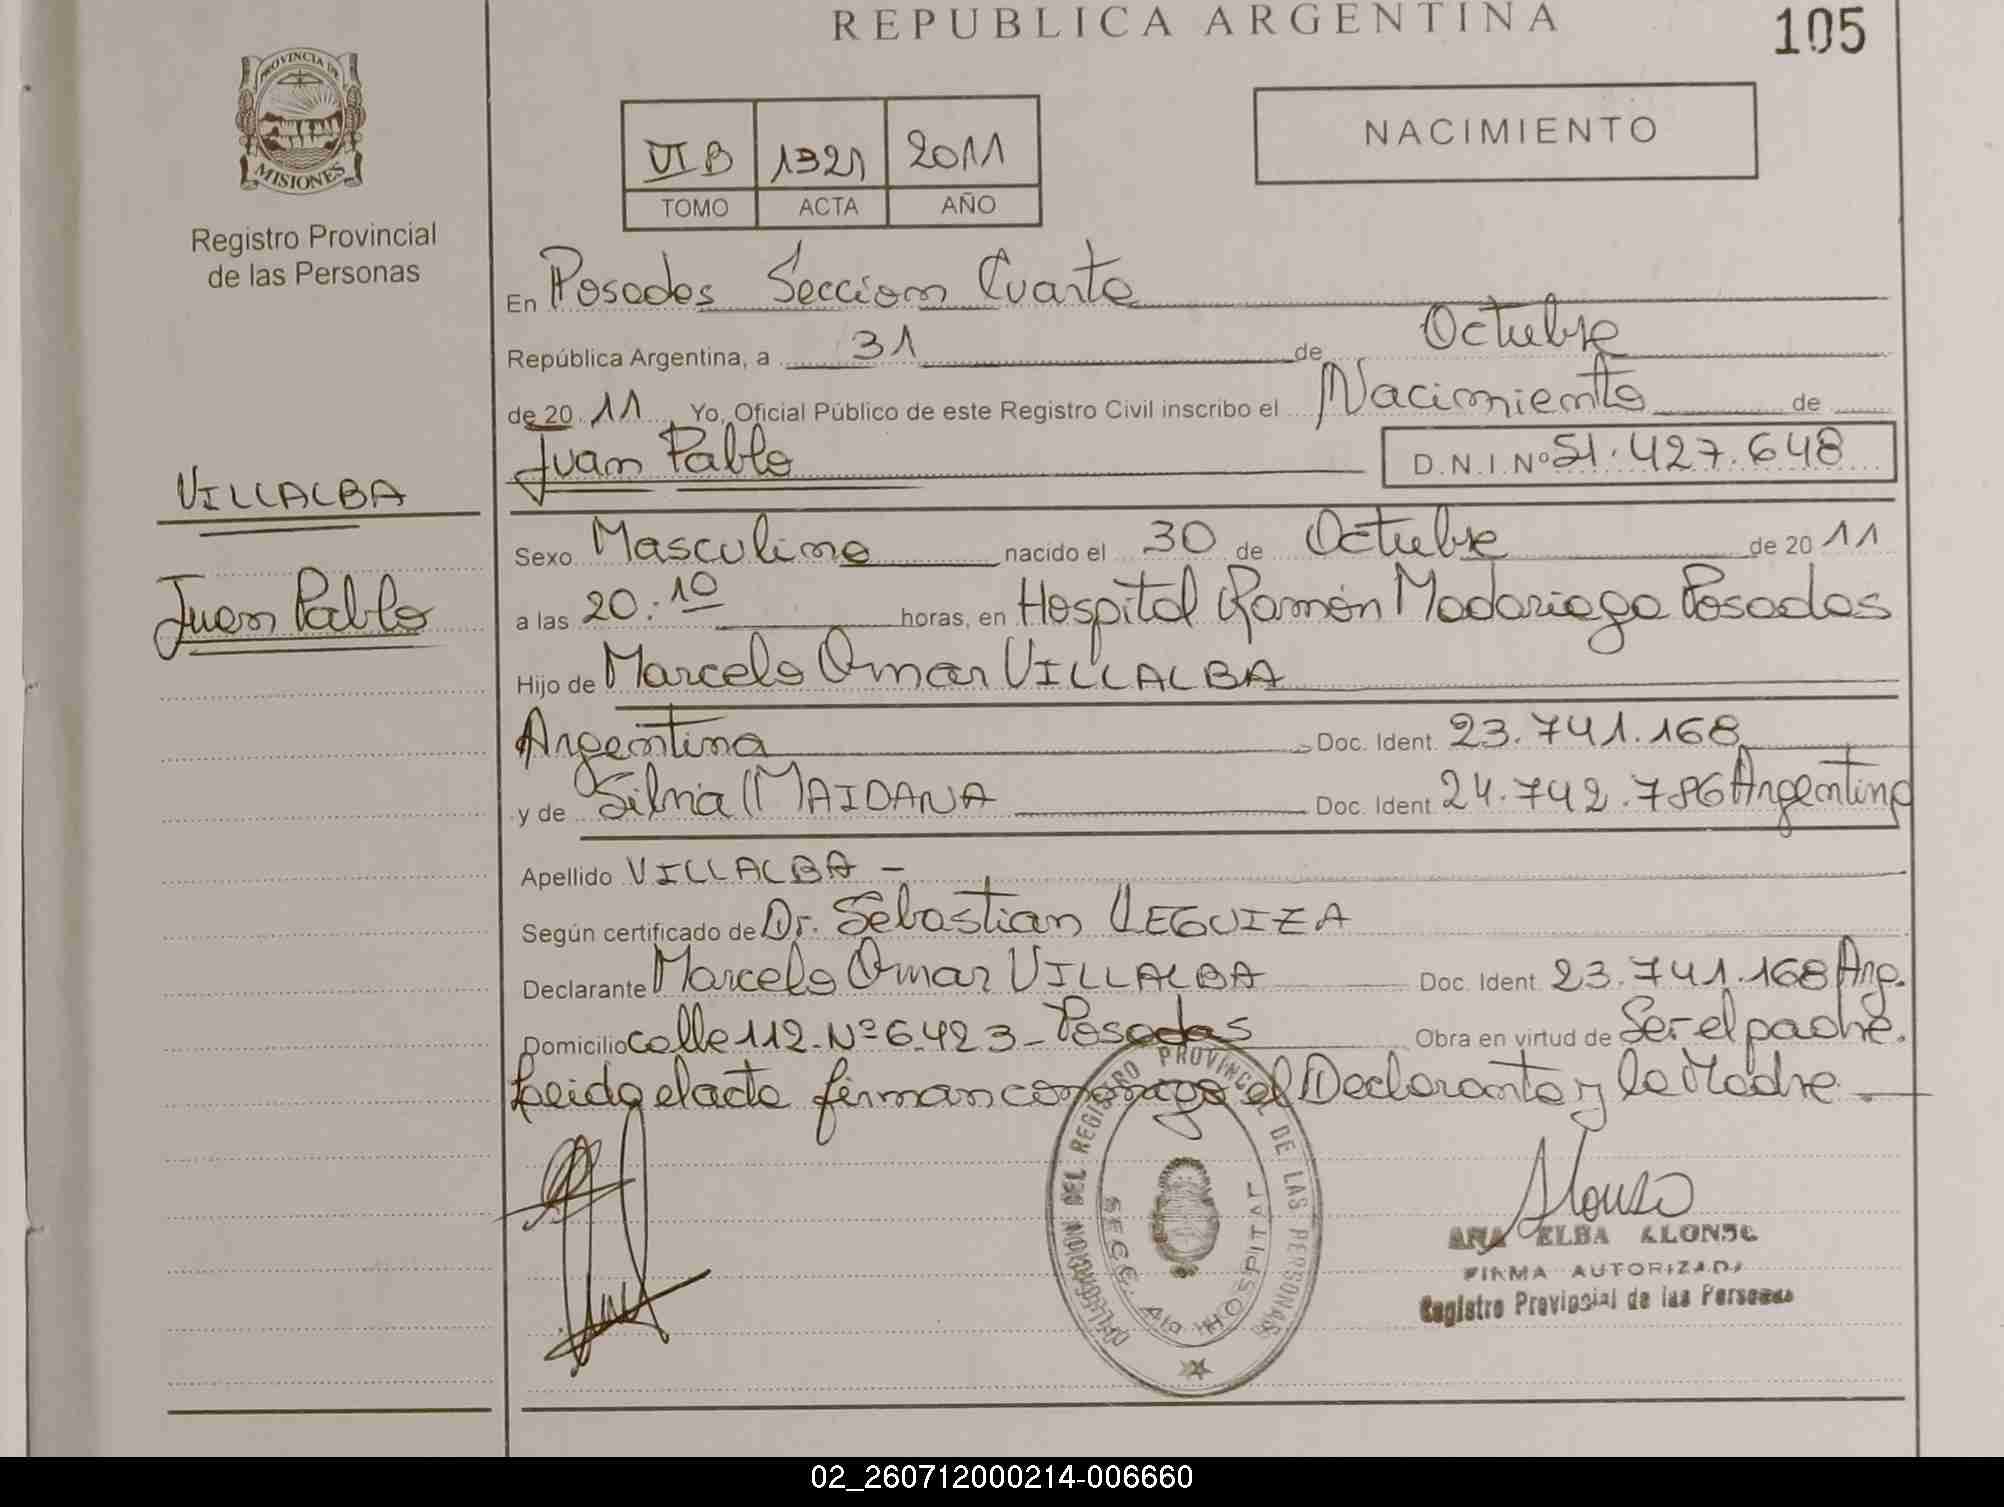 REPUBLICA ARGENTINA
105
PROVINCIA DE
MISIONES
Registro Provincial
de las Personas
VI B 1321 2011
TOMO ACTA AÑO
NACIMIENTO
En Posadas Sección Cuarta
República Argentina, a 31 de Octubre
de 20 11 Yo, Oficial Público de este Registro Civil inscribo el Nacimiento de
Juan Pablo D.N.I.Nº 51.427.648
VILLALBA
Juan Pablo
Sexo Masculino nacido el 30 de Octubre de 20 11
a las 20:10 horas, en Hospital Ramón Madariaga Posadas
Hijo de Marcelo Omar VILLALBA
Argentina Doc. Ident. 23.741.168
y de Silvia MAIDANA Doc. Ident. 24.742.786 Argentina
Apellido VILLALBA -
Según certificado de Dr. Sebastian LEGUIZA
Declarante Marcelo Omar VILLALBA Doc. Ident. 23.741.168 Arg.
Domicilio calle 112 - Nº 6423 - Posadas Obra en virtud de Ser el padre.
Leida el acta firman conmigo el Declarante y la Madre
DEL REGISTRO PROVINCIAL DE LAS PERSONAS
SECC. 4ta HOSPITAL
Alonso
ANA ELBA ALONSO
FIRMA AUTORIZADA
Registro Provincial de las Personas
02_260712000214-006660